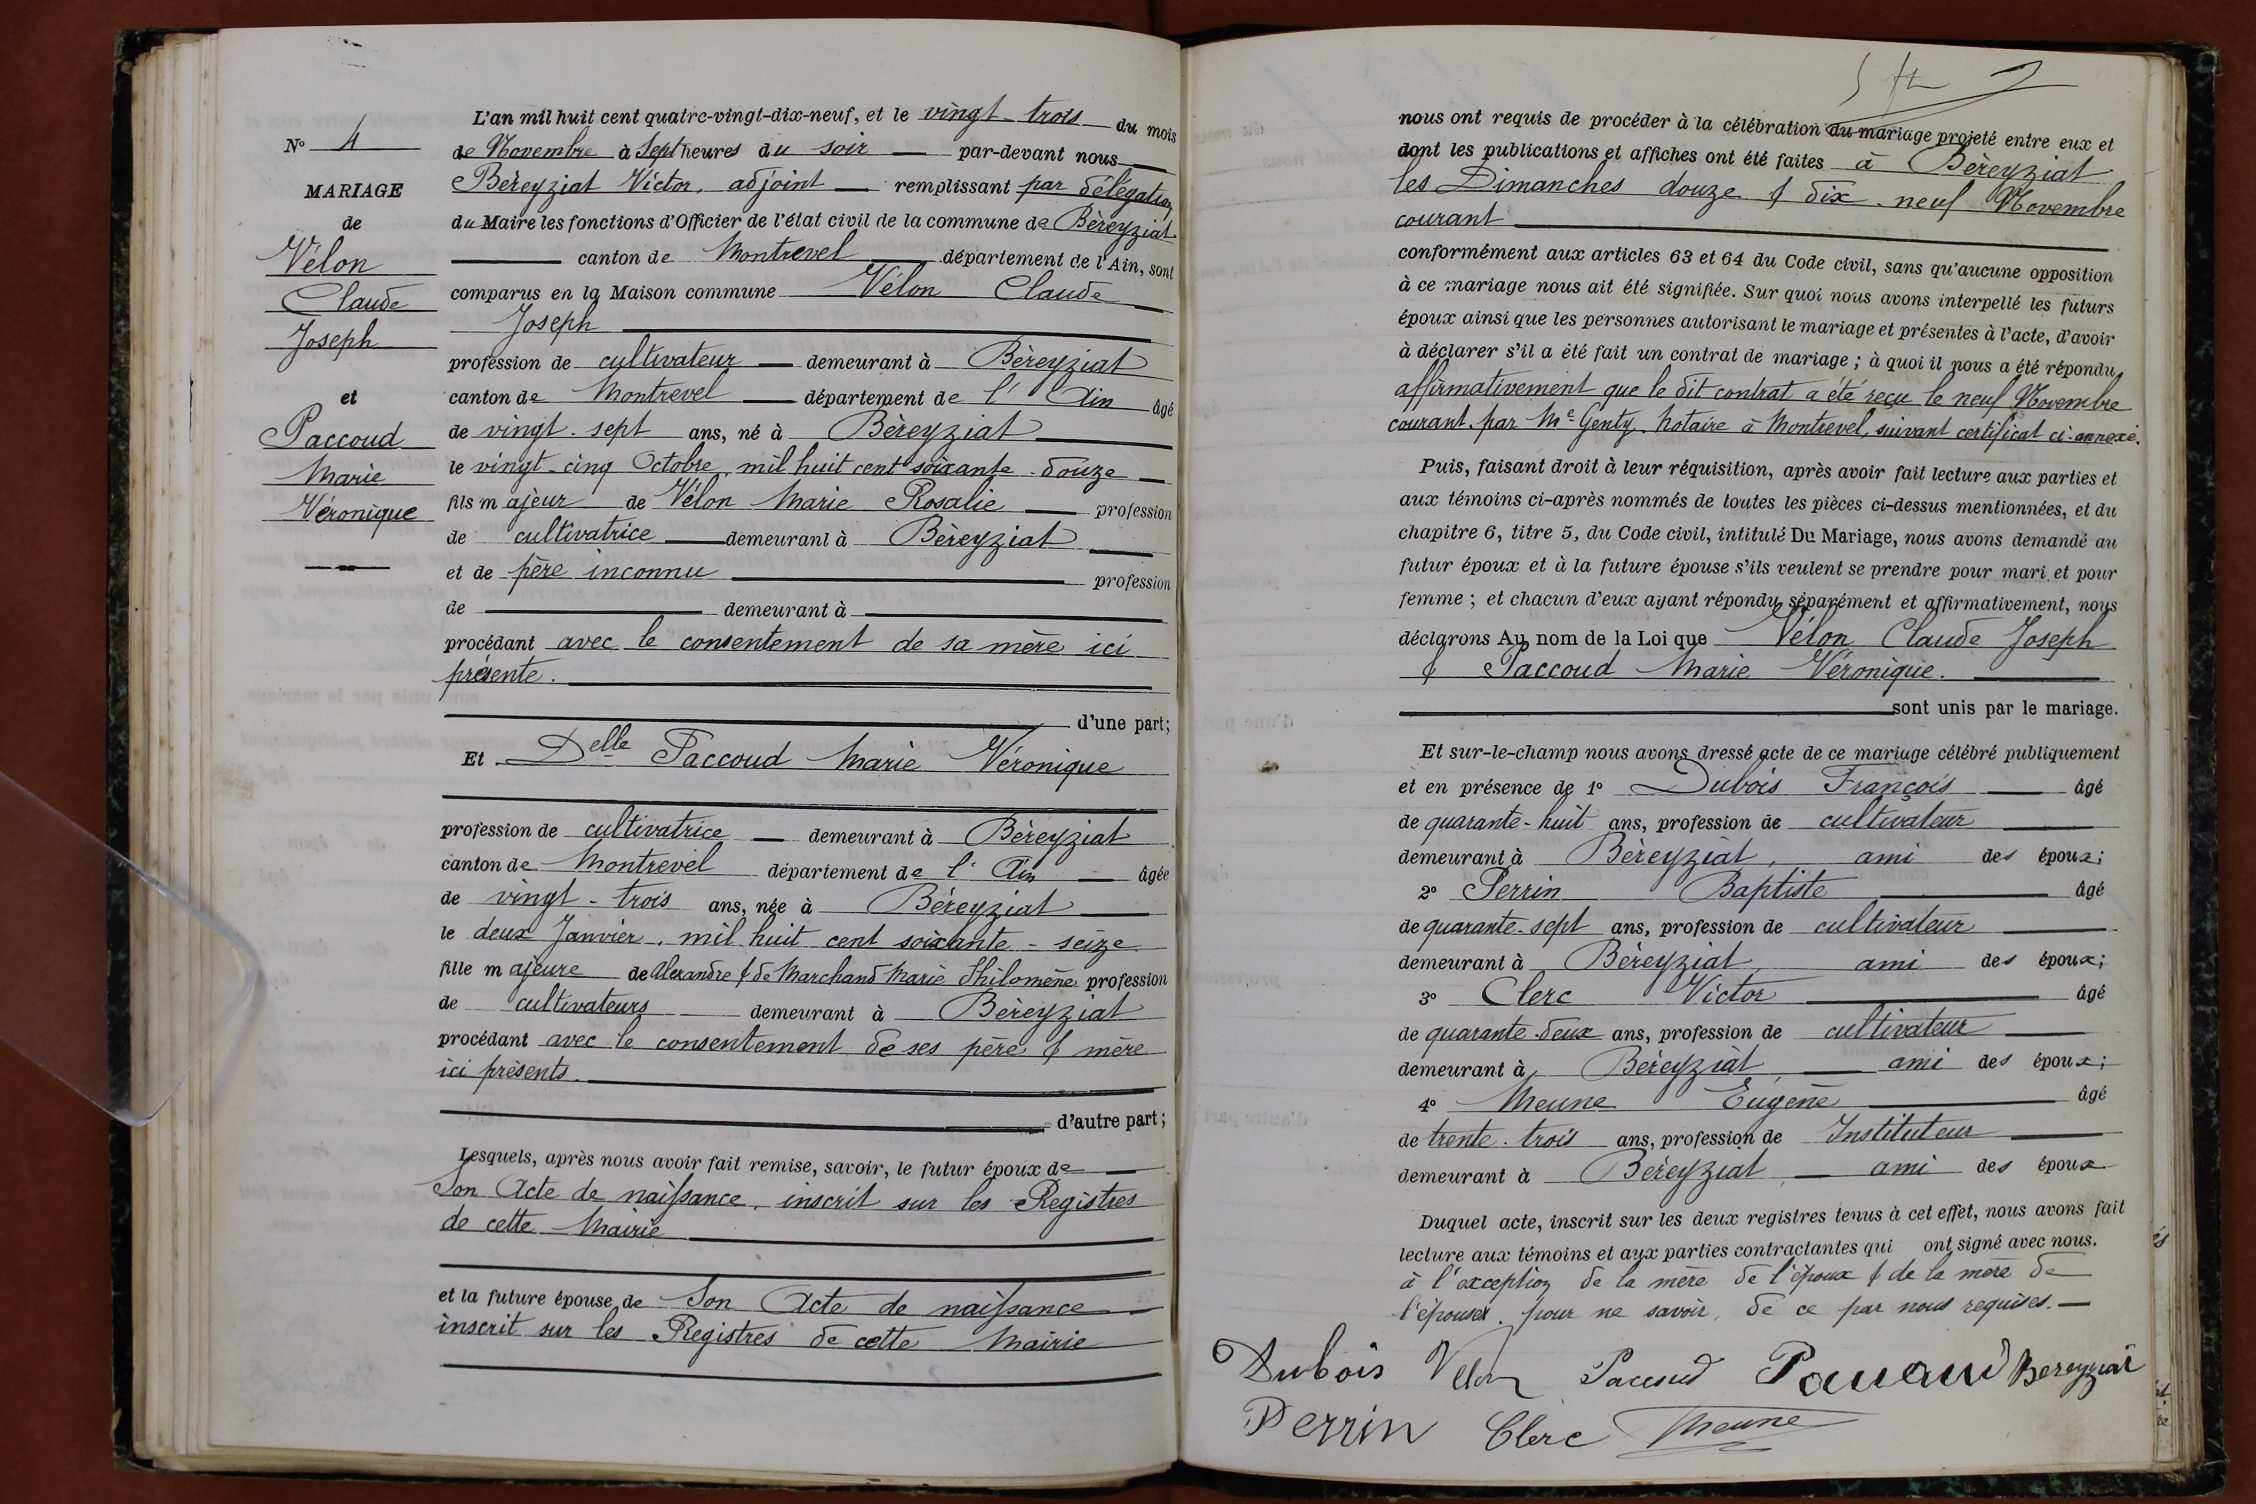 N° 4
MARIAGE
de
Vélon
Claude
Joseph
et
Paccoud
Marie
Véronique
L'an mil huit cent quatre-vingt-dix-neuf, et le vingt-trois du mois
de Novembre à Sept heures du soir par-devant nous
Béreyziat Victor, adjoint remplissant par délégation
du Maire les fonctions d'Officier de l'état civil de la commune de Béreyziat
canton de Montrevel département de l'Ain, sont
comparus en la Maison commune Vélon Claude
Joseph
profession de cultivateur demeurant à Béreyziat
canton de Montrevel département de l'Ain âgé
de vingt-sept ans, né à Béreyziat
le vingt-cinq Octobre, mil huit cent soixante-douze
fils majeur de Vélon Marie Rosalie profession
de cultivatrice demeurant à Béreyziat
et de père inconnu profession
de demeurant à
procédant avec le consentement de sa mère ici
présente.
d'une part;
Et Delle Paccoud Marie Véronique
profession de cultivatrice demeurant à Béreyziat
canton de Montrevel département de l'Ain âgée
de vingt-trois ans, née à Béreyziat
le deux Janvier, mil huit cent soixante-seize
fille majeure de Alexandre & de Marchand Marie Philomène profession
de cultivateurs demeurant à Béreyziat
procédant avec le consentement de ses père & mère
ici présents.
d'autre part;
Lesquels, après nous avoir fait remise, savoir, le futur époux de
Son Acte de naissance, inscrit sur les Registres
de cette Mairie
et la future épouse de Son Acte de naissance
inscrit sur les Registres de cette Mairie
nous ont requis de procéder à la célébration du mariage projeté entre eux et
dont les publications et affiches ont été faites à Béreyziat
les Dimanches douze & dix-neuf Novembre
courant
conformément aux articles 63 et 64 du Code civil, sans qu'aucune opposition
à ce mariage nous ait été signifiée. Sur quoi nous avons interpellé les futurs
époux ainsi que les personnes autorisant le mariage et présentes à l'acte, d'avoir
à déclarer s'il a été fait un contrat de mariage; à quoi il nous a été répondu
affirmativement que le dit contrat a été reçu le neuf Novembre
courant, par Me Genty, Notaire à Montrevel, suivant certificat ci-annexé.
Puis, faisant droit à leur réquisition, après avoir fait lecture aux parties et
aux témoins ci-après nommés de toutes les pièces ci-dessus mentionnées, et du
chapitre 6, titre 5, du Code civil, intitulé Du Mariage, nous avons demandé au
futur époux et à la future épouse s'ils veulent se prendre pour mari et pour
femme; et chacun d'eux ayant répondu séparément et affirmativement, nous
déclarons Au nom de la Loi que Vélon Claude Joseph
& Paccoud Marie Véronique.
sont unis par le mariage.
Et sur-le-champ nous avons dressé acte de ce mariage célébré publiquement
et en présence de 1° Dubois François âgé
de quarante-huit ans, profession de cultivateur
demeurant à Béreyziat, ami des époux;
2° Perrin Baptiste âgé
de quarante-sept ans, profession de cultivateur
demeurant à Béreyziat, ami des époux;
3° Clerc Victor âgé
de quarante-deux ans, profession de cultivateur
demeurant à Béreyziat, ami des époux;
4° Meune Eugène âgé
de trente-trois ans, profession de Instituteur
demeurant à Béreyziat, ami des époux
Duquel acte, inscrit sur les deux registres tenus à cet effet, nous avons fait
lecture aux témoins et aux parties contractantes qui ont signé avec nous.
à l'exception de la mère de l'époux & de la mère de
l'épouse, pour ne savoir, de ce par nous requises.
Dubois Velon Paccoud Paccoud Bereyziat
Perrin Clerc Meune